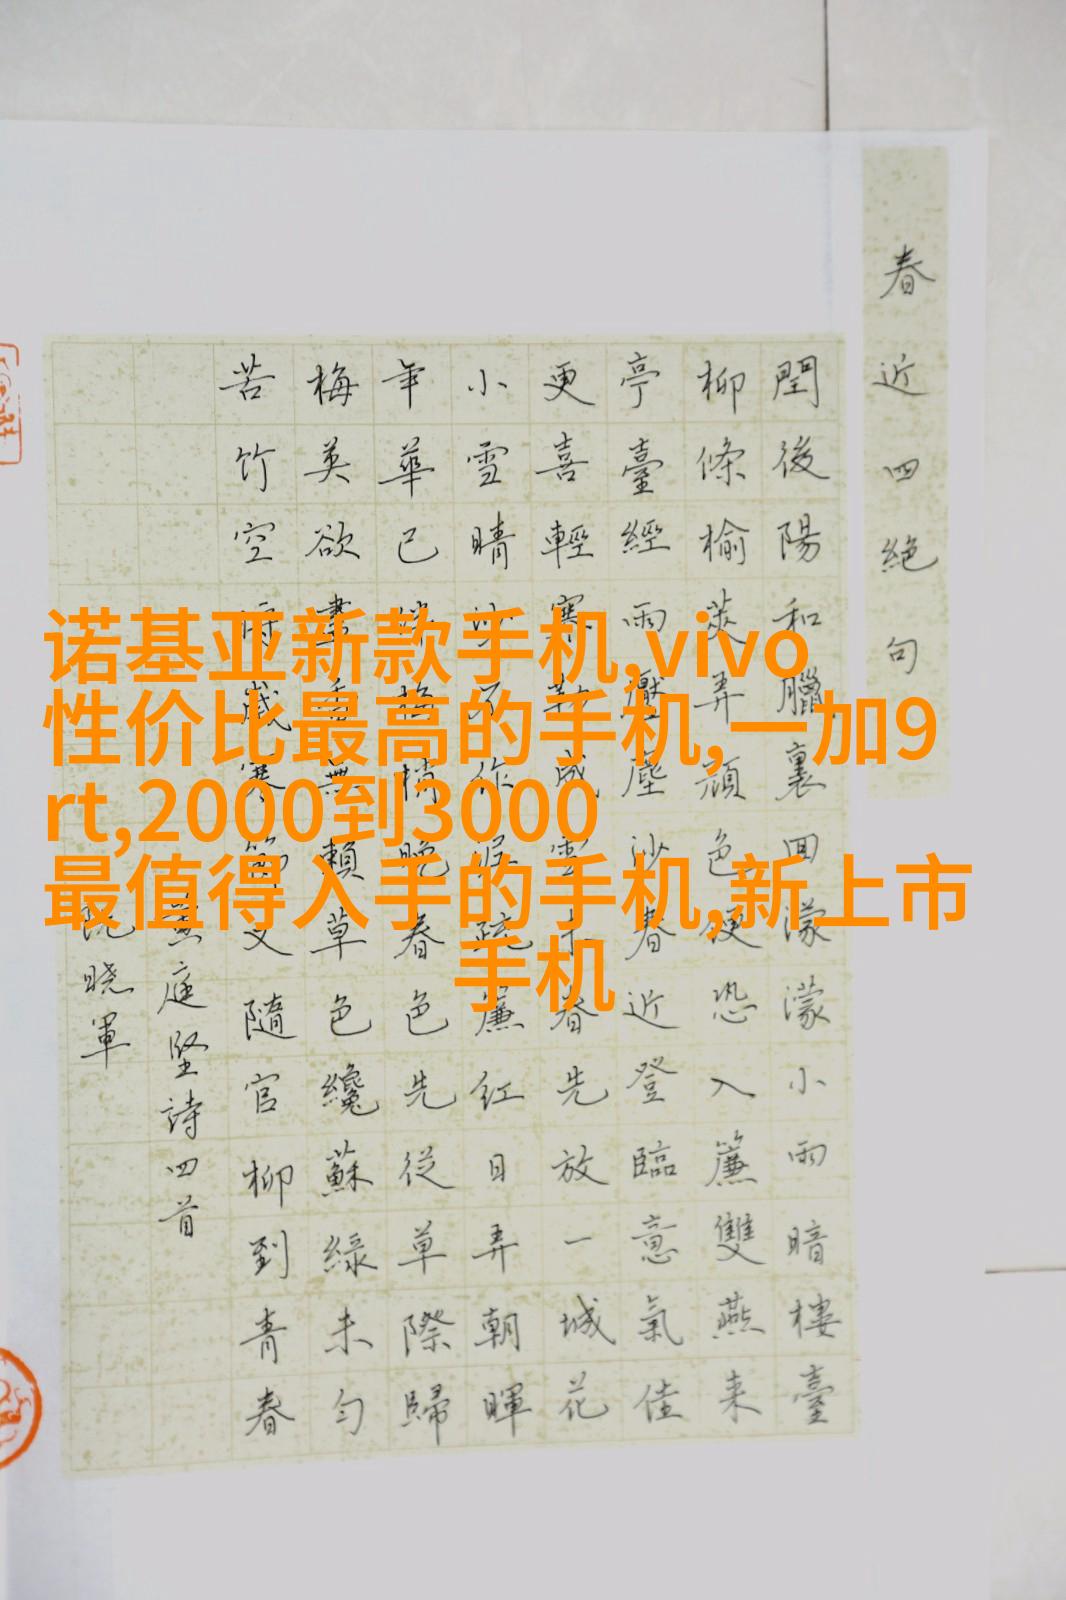 春近四絕句
閏後陽和臘裏回濛濛小雨暗樓臺
柳條榆莢弄顏色便恐入簾雙燕来
亭臺經雨壓塵沙春近登臨意氣佳
更喜輕寒勒成雪未春先放一城花
小雪晴沙不作泥疏簾紅日弄朝暉
年華已伴梅梢晚春色先從草際歸
梅英欲盡香無賴草色纔蘇綠未勻
苦竹空將歲寒節又隨官柳到青春
黃庭堅詩四首
阮晓軍
诺基亚新款手机,vivo
性价比最高的手机,一加9
rt,2000到3000
最值得入手的手机,新上市
手机